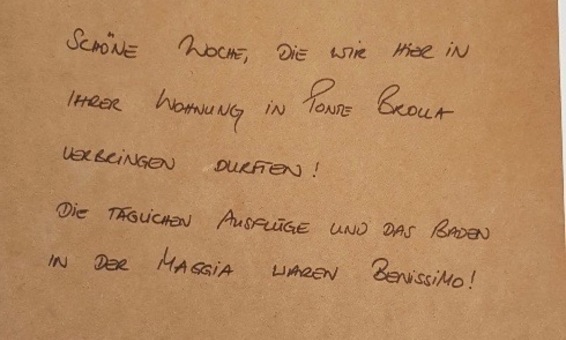 Schöne Woche, die wir hier in
Ihrer Wohnung in Ponte Brolla
verbringen durften!
Die täglichen Ausflüge und das Baden
in der Maggia waren Benissimo!